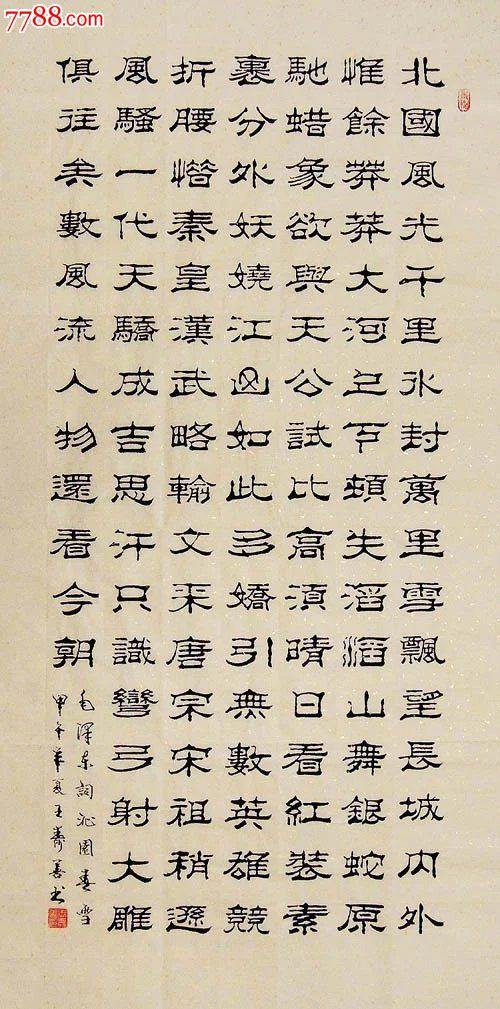 7788.com
北國風光千里冰封萬里雪飄望長城内外
惟餘莽莽大河上下頓失滔滔山舞銀蛇原
馳蜡象欲與天公試比高須晴日看紅裝素
裹分外妖嬈江山如此多嬌引無數英雄競
折腰惜秦皇漢武略輸文采唐宗宋祖稍遜
風騷一代天驕成吉思汗只識彎弓射大雕
俱往矣數風流人物還看今朝
毛澤東詞沁園春雪
甲午夏王壽善书